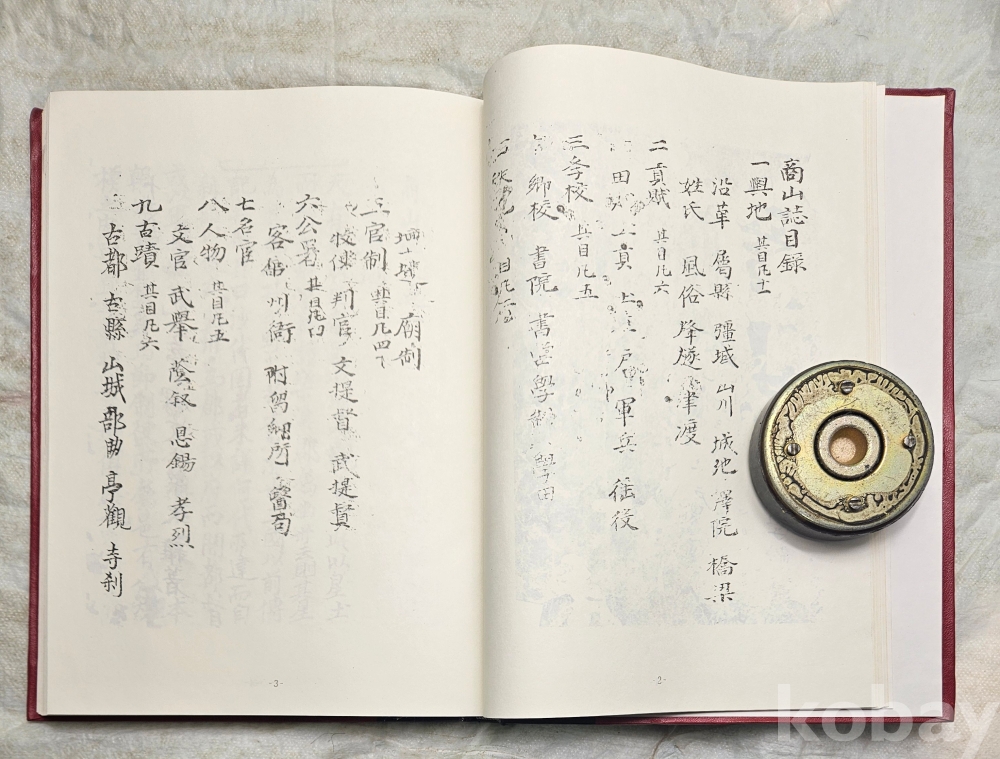 商山誌目録
一輿地 其目凡十一
沿革 屬縣 彊域 山川 城池 驛院 橋梁
姓氏 風俗 烽燧 津渡
二貢賦 其目凡六
田 貢 上 戶 軍兵 徭役
三季校 其目凡五
鄕校 書院 書堂 學 學田
壇 廟制
五官制 其目凡四
牧使 判官 文提督 武提督
六公署 其目凡
客館 州衙 附 所
七名宦
八人物 其目凡五
文官 武擧 蔭叙 恩錫 孝烈
九古蹟 其目凡六
古都 古縣 山城 部曲 亭觀 寺刹
-3-
-2-
kobay